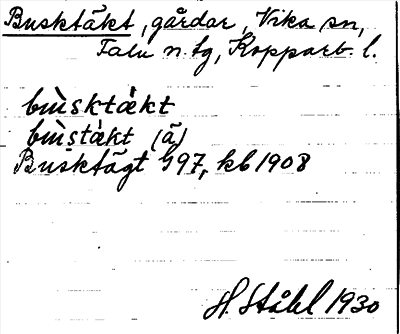 Busktäkt, gårdar, Vika sn,
Falu n. tg, Kopparb. l.
bùsktàkt
bùstàkt (ä)
Busktägt G97, kb 1908
H. Ståhl 1930